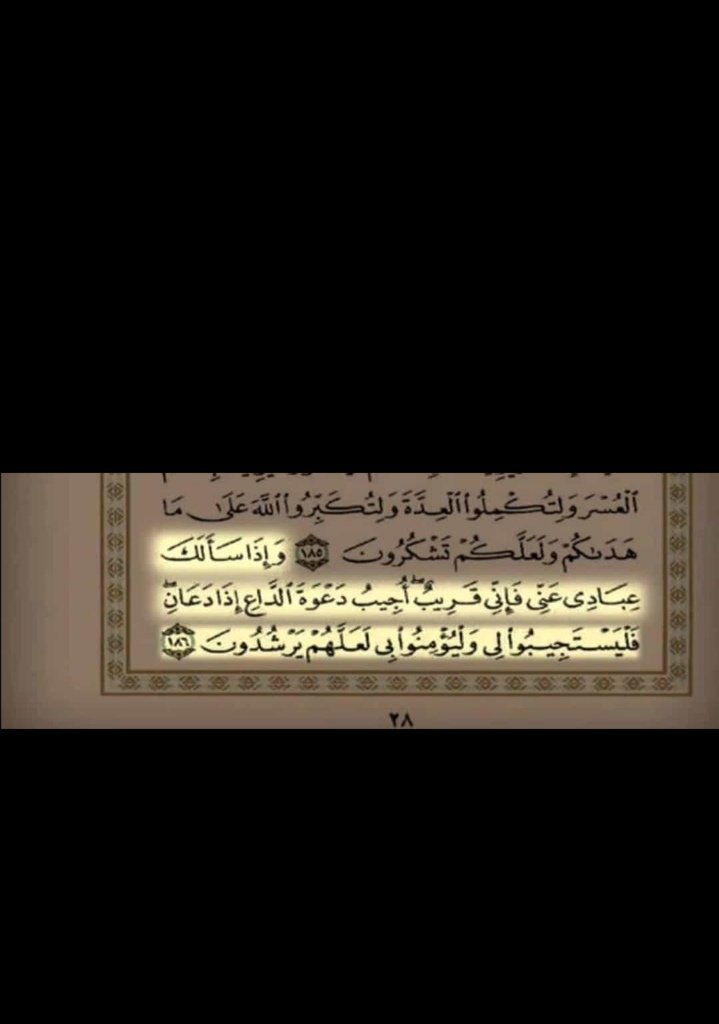 ٱلْعُسْرَ وَلِتُكْمِلُوا۟ ٱلْعِدَّةَ وَلِتُكَبِّرُوا۟ ٱللَّهَ عَلَىٰ مَا
هَدَىٰكُمْ وَلَعَلَّكُمْ تَشْكُرُونَ ١٨٥ وَإِذَا سَأَلَكَ
عِبَادِى عَنِّى فَإِنِّى قَرِيبٌ ۖ أُجِيبُ دَعْوَةَ ٱلدَّاعِ إِذَا دَعَانِ ۖ
فَلْيَسْتَجِيبُوا۟ لِى وَلْيُؤْمِنُوا۟ بِى لَعَلَّهُمْ يَرْشُدُونَ ١٨٦
٢٨